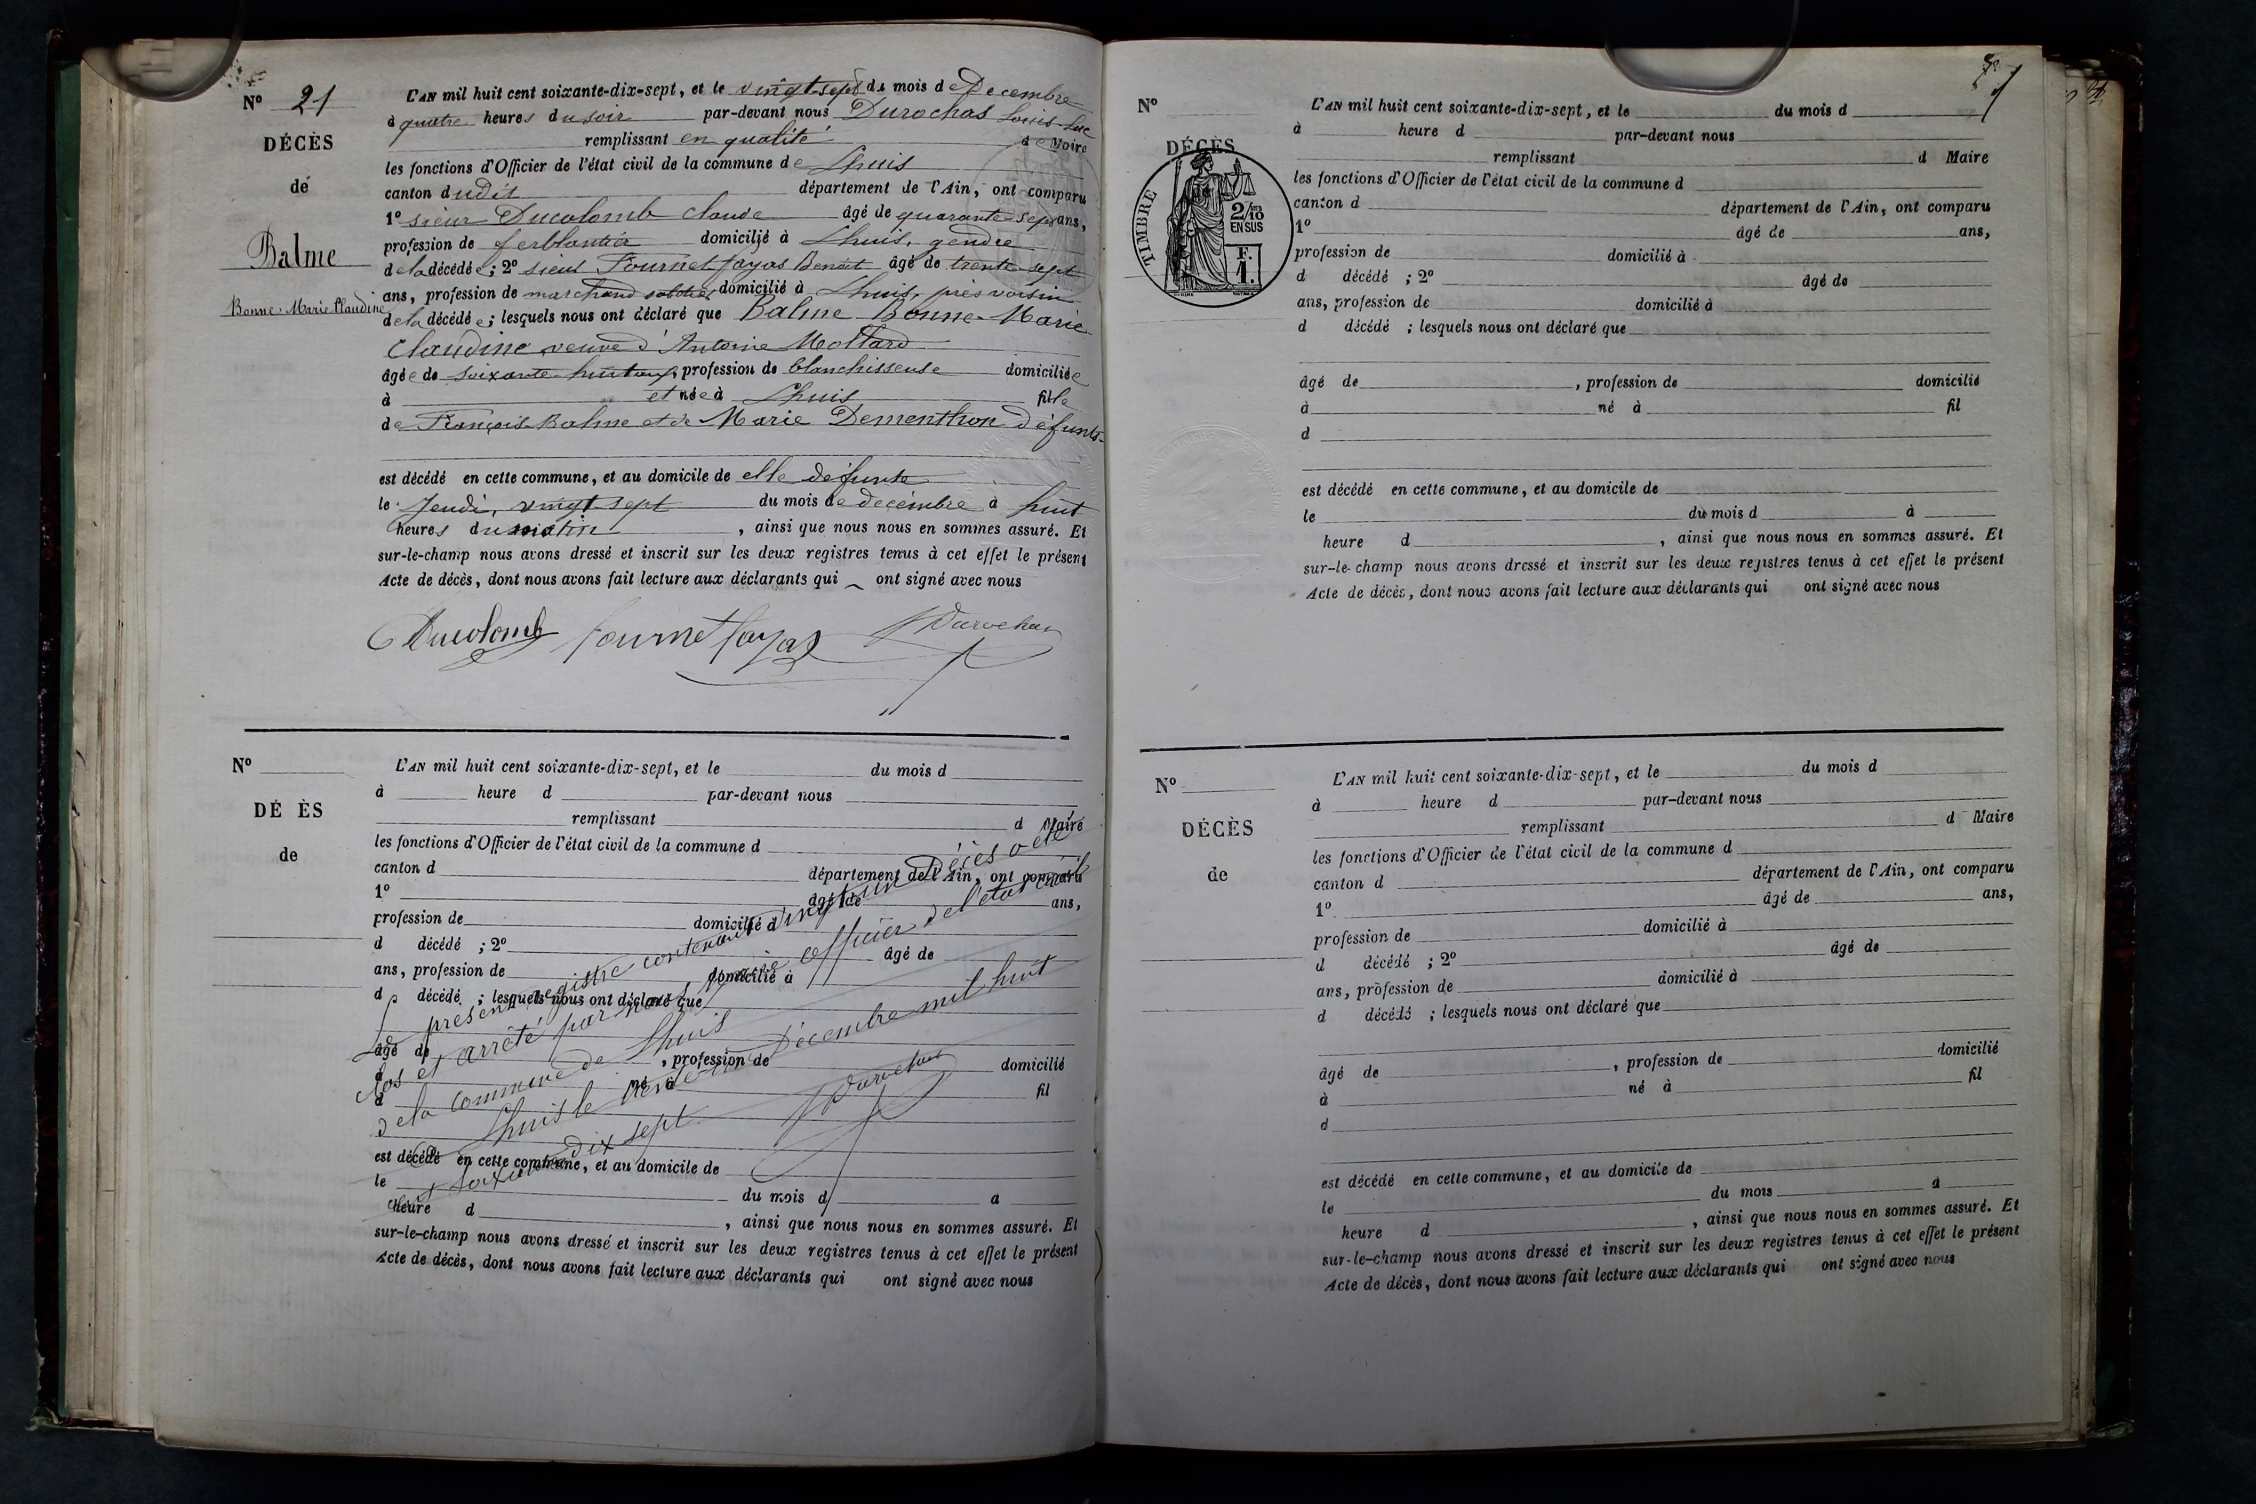 N° 21
DÉCÈS
de
Balme
Bonne-Marie-Claudine
L'AN mil huit cent soixante-dix-sept, et le vingt-sept du mois de Decembre
à quatre heures du soir par-devant nous Durochas Louis-Luc
remplissant en qualité de Maire
les fonctions d'Officier de l'état civil de la commune de Lhuis
canton dudit département de l'Ain, ont comparu
1° sieur Ducolomb Claude âgé de quarante sept ans,
profession de ferblantier domicilié à Lhuis, gendre
de la décédée; 2° sieur Fournet fayas Benoit âgé de trente-sept
ans, profession de marchand domicilié à Lhuis, près voisin
de la décédée; lesquels nous ont déclaré que Balme Bonne-Marie
Claudine veuve d'Antoine Mollard
âgée de soixante-huit ans, profession de blanchisseuse domiciliée
à et née à Lhuis fille
de François Balme et de Marie Dementhon défunts
est décédé en cette commune, et au domicile de elle défunte
le Jeudi, vingt sept du mois de decembre à huit
heures du matin, ainsi que nous nous en sommes assuré. Et
sur-le-champ nous avons dressé et inscrit sur les deux registres tenus à cet effet le présent
Acte de décès, dont nous avons fait lecture aux déclarants qui ont signé avec nous
Ducolomb fournet fayas Durochas
N°
DÉ ÈS
de
L'AN mil huit cent soixante-dix-sept, et le du mois d
à heure d par-devant nous
remplissant d Maire
les fonctions d'Officier de l'état civil de la commune d
canton d département de l'Ain, ont comparu
1° âgé de ans,
profession de domicilié à
d décédé ; 2° âgé de
ans, profession de domicilié à
d décédé ; lesquels nous ont déclaré que
âgé de , profession de domicilié
à né à fil
d
est décédé en cette commune, et au domicile de
le du mois d à
heure d , ainsi que nous nous en sommes assuré. Et
sur-le-champ nous avons dressé et inscrit sur les deux registres tenus à cet effet le présent
Acte de décès, dont nous avons fait lecture aux déclarants qui ont signé avec nous
Le présent registre contenant vingt un Décès a été
clos et arrêté par nous Maire officier de l'état civil
de la commune de Lhuis
à Lhuis le trente un Décembre mil huit
cent soixante dix sept.
Durochas
N°
DÉCÈS
TIMBRE
2/10 EN SUS
F. 1.
L'AN mil huit cent soixante-dix-sept, et le du mois d
à heure d par-devant nous
remplissant d Maire
les fonctions d'Officier de l'état civil de la commune d
canton d département de l'Ain, ont comparu
1° âgé de ans,
profession de domicilié à
d décédé ; 2° âgé de
ans, profession de domicilié à
d décédé ; lesquels nous ont déclaré que
âgé de , profession de domicilié
à né à fil
d
est décédé en cette commune, et au domicile de
le du mois d à
heure d , ainsi que nous nous en sommes assuré. Et
sur-le-champ nous avons dressé et inscrit sur les deux registres tenus à cet effet le présent
Acte de décès, dont nous avons fait lecture aux déclarants qui ont signé avec nous
N°
DÉCÈS
de
L'AN mil huit cent soixante-dix-sept, et le du mois d
à heure d par-devant nous
remplissant d Maire
les fonctions d'Officier de l'état civil de la commune d
canton d département de l'Ain, ont comparu
1° âgé de ans,
profession de domicilié à
d décédé ; 2° âgé de
ans, profession de domicilié à
d décédé ; lesquels nous ont déclaré que
âgé de , profession de domicilié
à né à fil
d
est décédé en cette commune, et au domicile de
le du mois à
heure d , ainsi que nous nous en sommes assuré. Et
sur-le-champ nous avons dressé et inscrit sur les deux registres tenus à cet effet le présent
Acte de décès, dont nous avons fait lecture aux déclarants qui ont signé avec nous